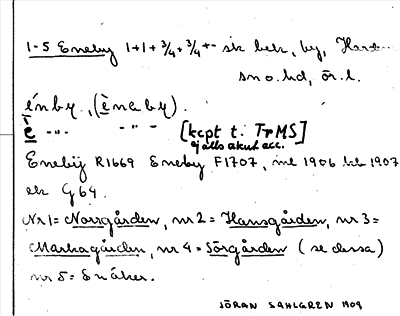 1-5 Eneby 1+1+3/4+3/4+- sk bek, by,
sn o. hd, ör. l.
énby, (ènaby).
è -"- -"- [kcpt t. TrMS]
gälls akut acc.
Enebÿ R1669 Eneby F1707, 1906 1907
ek G64.
Nr 1 = Norrgården, nr 2 = Hansgården, nr 3 =
Markagården, nr 4 = Sörgården (se dessa)
nr 5 = Enåker.
JÖRAN SAHLGREN 1909